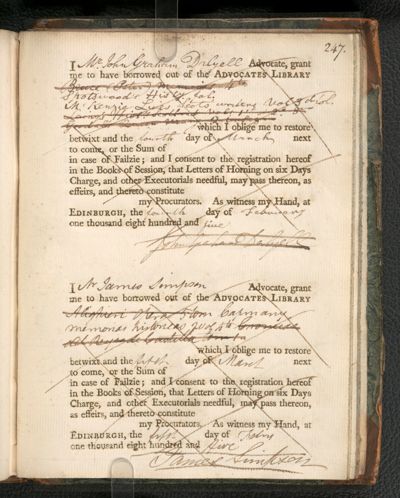 247.
I Mr John Graham Dalyell Advocate, grant
me to have borrowed out of the ADVOCATES LIBRARY
Memoirs 4to
Spotiswoods Hist of
McKenzie Lives Scots Vol
which I oblige me to restore
betwixt and the fourth day of March next
to come, or the Sum of
in case of Failzie; and I consent to the registration hereof
in the Books of Session, that Letters of Horning on six Days
Charge, and other Executorials needful, may pass thereon, as
effeirs, and thereto constitute
my Procurators. As witness my Hand, at
EDINBURGH, the fourth day of February
one thousand eight hundred and five
John Graham Dalyell
I Mr James Simpson Advocate, grant
me to have borrowed out of the ADVOCATES LIBRARY
Alighieri Opera 5 tom Capmany
memorias historicas
which I oblige me to restore
betwixt and the first day of March next
to come, or the Sum of
in case of Failzie; and I consent to the registration hereof
in the Books of Session, that Letters of Horning on six Days
Charge, and other Executorials needful, may pass thereon,
as effeirs, and thereto constitute
my Procurators. As witness my Hand, at
EDINBURGH, the first day of Febry
one thousand eight hundred and five
James Simpson